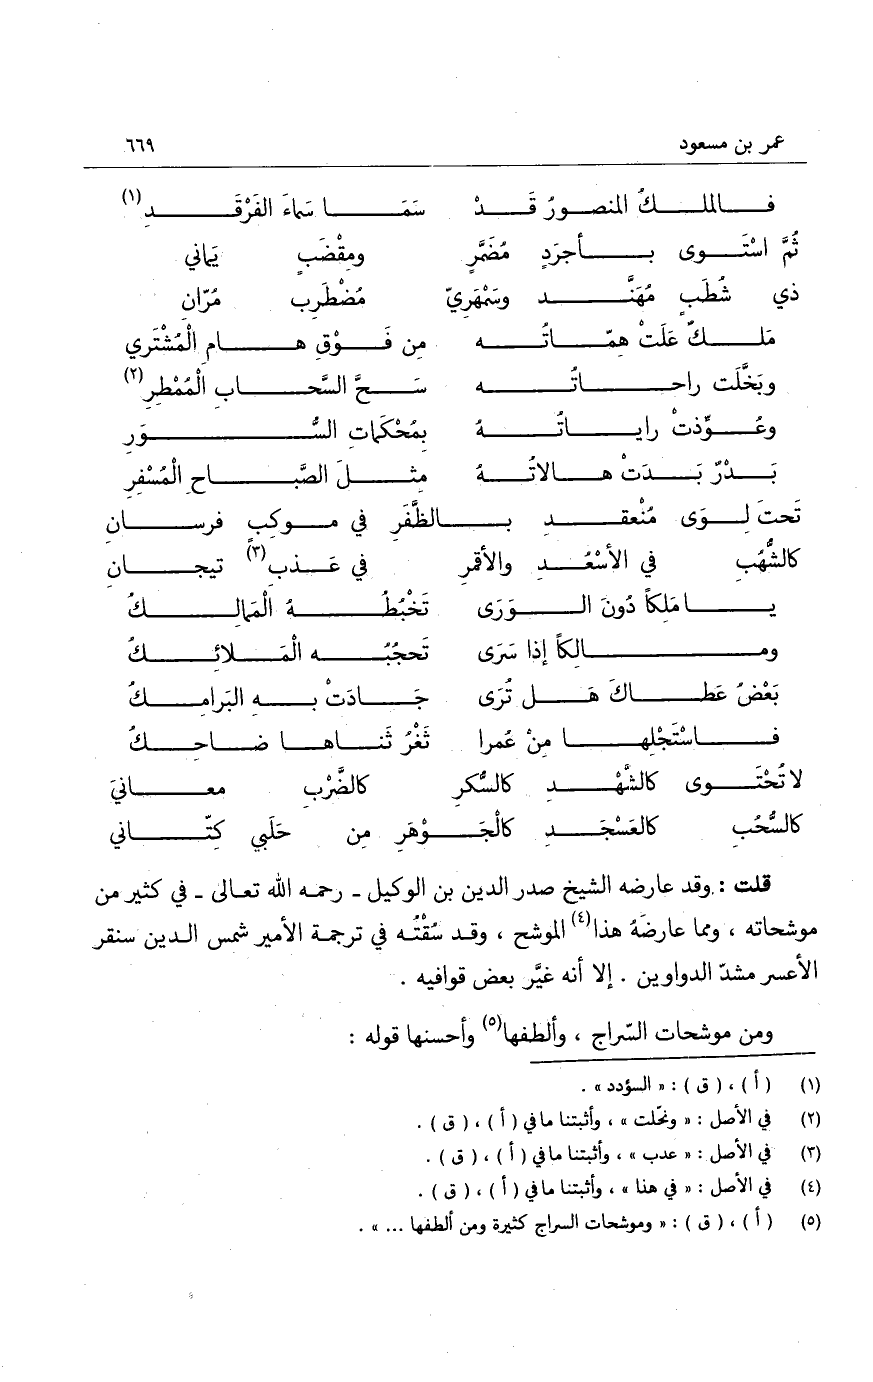 عمر بن مسعود ٦٦٩
فالملكُ المنصورُ قَدْ سَمَا سَماءَ الفَرْقَدِ (١)
ثُمَّ اسْتَوى بأجرَدٍ مُضَمَّرٍ ومِقْضَبٍ يَماني
ذي شُطَبٍ مُهَنَّدِ وسَمْهَريّ مُضْطَرِب مُرّان
مَلكٌ عَلَتْ همّاتُه من فَوْقِ هامِ الْمُشْتَري
وبَخَّلَت راحاتُه سَحَّ السَّحابِ الْمُمْطِرِ (٢)
وعُوِّذتْ راياتُهُ بمُحْكَماتِ السُّوَرِ
بَدْرٌ بَدَتْ هالاتُهُ مثلَ الصَّباحِ الْمُسْفِرِ
تَحتَ لِوَى مُنْعقدِ بالظَّفَرِ في موكبِ فرسانِ
كالشُّهُبِ في الأسْعُدِ والأقمرِ في عَذبِ (٣) تيجانِ
يا مَلِكاً دُونَ الوَرَى تَخْبُطُهُ الْمَمالكُ
ومالِكاً إذا سَرَى تَحجُبُه الْمَلائكُ
بَعْضُ عَطاكَ هَل تُرَى جَادَتْ به البَرامكُ
فاسْتَجْلِها مِنْ عُمرا ثَغْرُ ثَناها ضاحكُ
لا تُحْتَوى كالشَّهْدِ كالسُّكرِ كالضَّرْبِ معانيَ
كالسُّحُبِ كالعَسْجَدِ كالْجَوْهَرِ مِن حَلَبي كتّاني
قلت : وقد عارضه الشيخ صدر الدين بن الوكيل ـ رحمه الله تعالى ـ في كثير من
موشحاته ، ومما عارضَهُ هذا (٤) الموشح ، وقد سُقْتُه في ترجمة الأمير شمس الدين سنقر
الأعسر مشدّ الدواوين . إلا أنه غيَّر بعض قوافيه .
ومن موشحات السّراج ، وألطفها (٥) وأحسنها قوله :
(١) ( أ ) ، ( ق ) : « السؤدد » .
(٢) في الأصل : « ونحّلت » ، وأثبتنا ما في ( أ ) ، ( ق ) .
(٣) في الأصل : « عدب » ، وأثبتنا ما في ( أ ) ، ( ق ) .
(٤) في الأصل : « في هذا » ، وأثبتنا ما في ( أ ) ، ( ق ) .
(٥) ( أ ) ، ( ق ) : « وموشحات السراج كثيرة ومن ألطفها ... » .